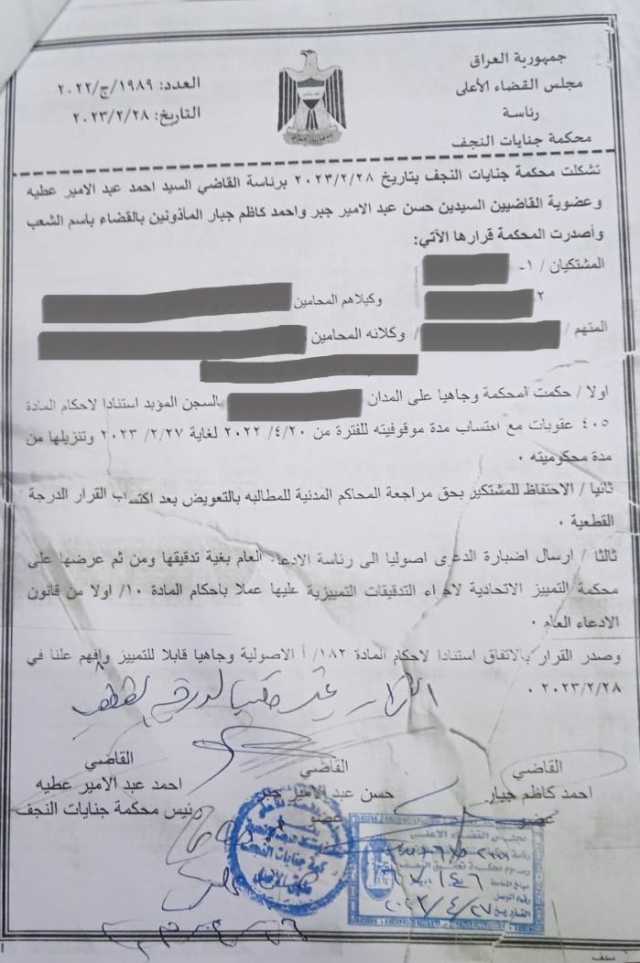 جمهورية العراق
مجلس القضاء الأعلى
رئاسة
محكمة جنايات النجف
العدد: ١٩٨٩/ج/٢٠٢٢
التاريخ: ٢٠٢٣/٢/٢٨
تشكلت محكمة جنايات النجف بتاريخ ٢٠٢٣/٢/٢٨ برئاسة القاضي السيد احمد عبد الامير عطيه
وعضوية القاضيين السيدين حسن عبد الامير جبر واحمد كاظم جبار المأذونين بالقضاء باسم الشعب
وأصدرت المحكمة قرارها الآتي:
المشتكيان / ١-
٢ وكيلاهم المحامين
المتهم / وكلائه المحامين
اولا / حكمت المحكمة وجاهيا على المدان بالسجن المؤبد استنادا لاحكام المادة
٤٠٥ عقوبات مع احتساب مدة موقوفيته للفترة من ٢٠٢٢/٤/٢٠ لغاية ٢٠٢٣/٢/٢٧ وتنزيلها من
مدة محكوميته ٠
ثانيا / الاحتفاظ للمشتكين بحق مراجعة المحاكم المدنية للمطالبه بالتعويض بعد اكتساب القرار الدرجة
القطعية ٠
ثالثا / ارسال اضبارة الدعوى اصوليا الى رئاسة الادعاء العام بغية تدقيقها ومن ثم عرضها على
محكمة التمييز الاتحادية لاجراء التدقيقات التمييزية عليها عملا باحكام المادة ١٠/ اولا من قانون
الادعاء العام ٠
وصدر القرار بالاتفاق استنادا لاحكام المادة ١٨٢/ أ الاصولية وجاهيا قابلا للتمييز وافهم علنا في
٢٠٢٣/٢/٢٨ ٠
القاضي
احمد كاظم جبار
عضو
القاضي
حسن عبد الامير جبر
عضو
القاضي
احمد عبد الامير عطيه
رئيس محكمة جنايات النجف
مجلس القضاء الاعلى